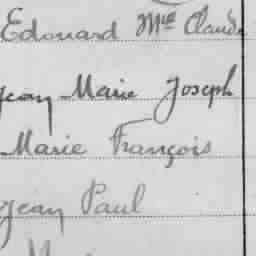 Edouard Mie Claude
Jean Marie Joseph
Marie François
Jean Paul